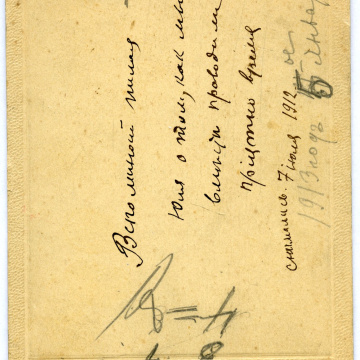 Вспоминай милая
Юля о том, как мы
вместе проводили
приятно время
снимались 7 июля 1912
1913 года 5 ое январ